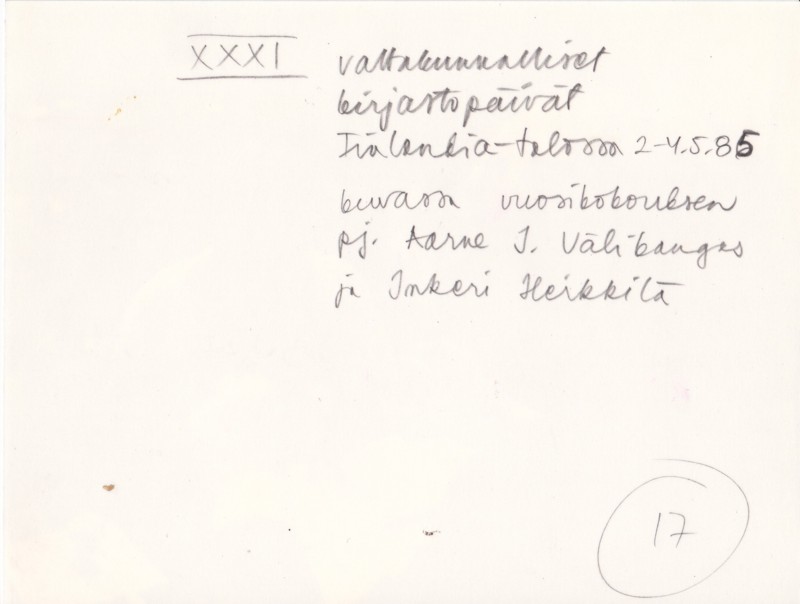 XXXI valtakunnalliset
kirjastopäivät
Finlandia-talossa 2-4.5.85
kuvassa vuosikokouksen
pj. Aarne J. Välikangas
ja Inkeri Heikkilä
17